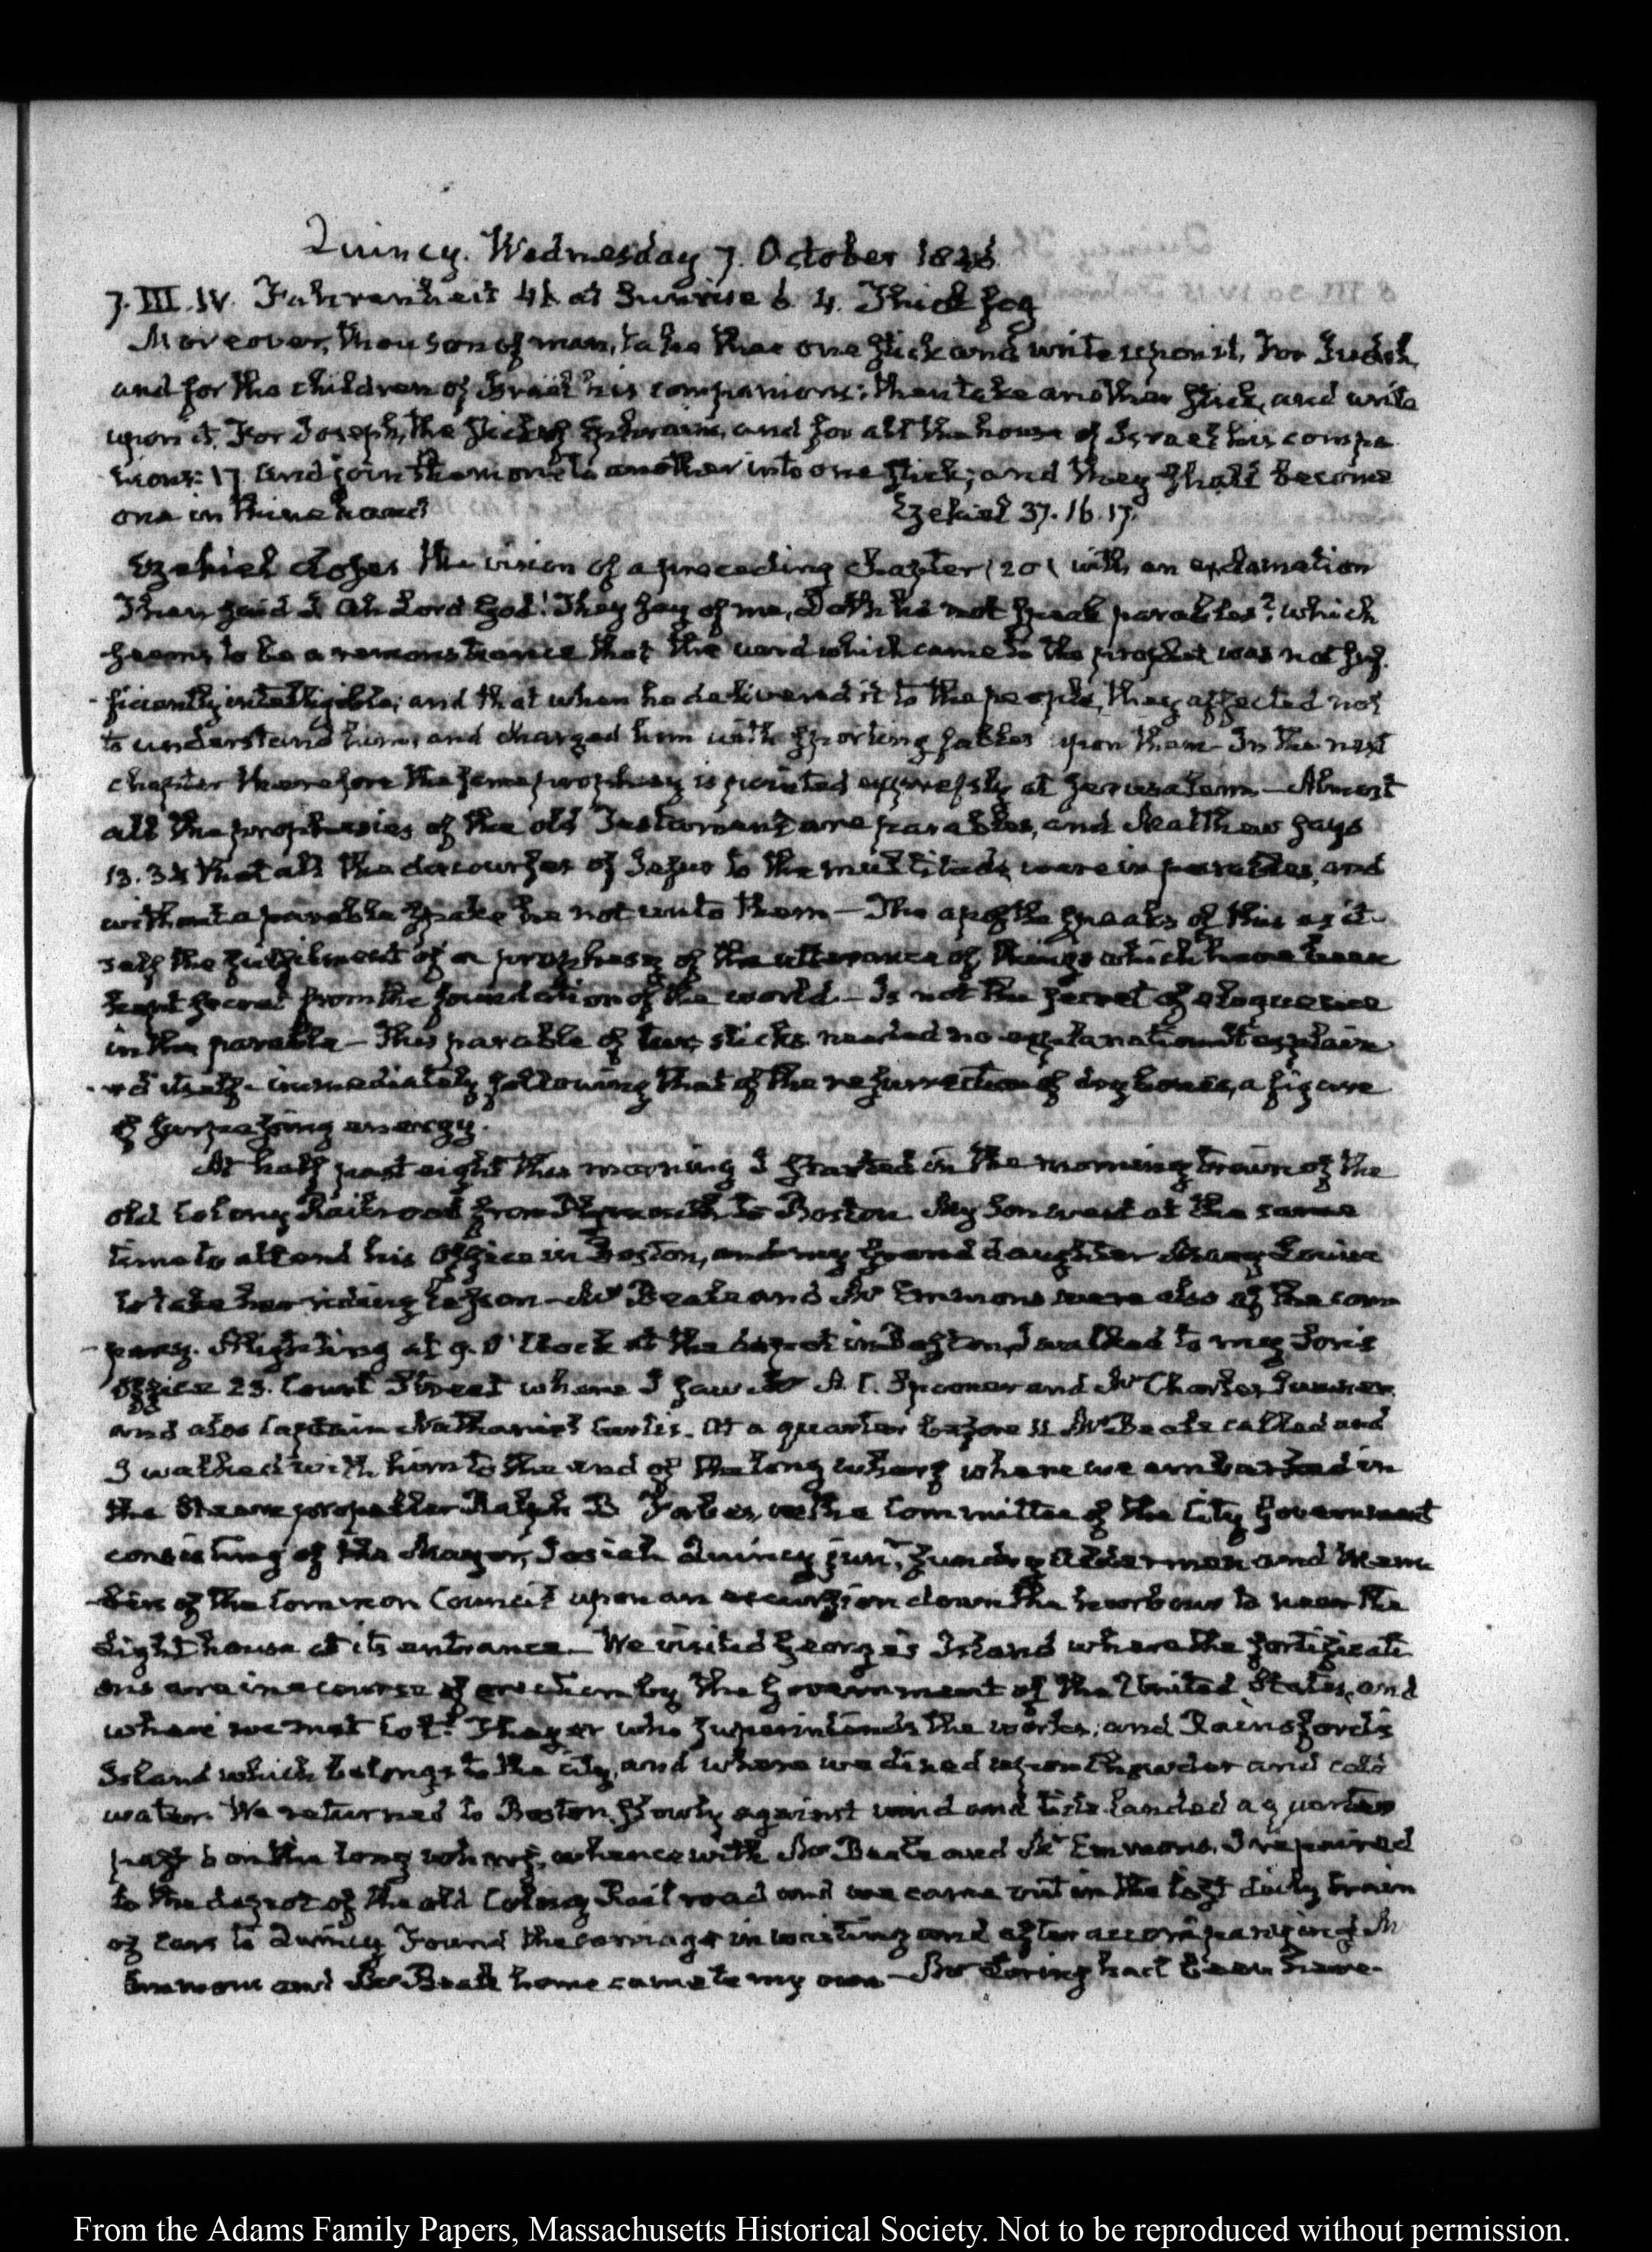 Quincy. Wednesday 7. October 1846
7. III. IV. Fahrenheit 41. at Sunrise 6. 4. Thick fog
Moreover, thou son of man, take thee one stick and write upon it, For Judah,
and for the children of Israel his companions: then take another stick, and write
upon it, For Joseph, the stick of Ephraim, and for all the house of Israel his compa
nions: 17 And join them one to another into one stick; and they shall become
one in thine hand Ezekiel 37. 16. 17.
Ezekiel closes the vision of a preceding Chapter (20) with an exclamation
Then said I Ah Lord God! They say of me, Doth he not speak parables? which
seems to be a remonstrance that the word which came to the prophet was not suf-
-ficiently intelligible; and that when he delivered it to the people, they affected not
to understand him, and charged him with sporting fables upon them— In the next
chapter therefore the same prophecy is pointed expressly at Jerusalem— Almost
all the prophesies of the old Testament are parables, and Matthew says
13. 34 that all the discourses of Jesus to the multitude were in parables, and
without a parable spake he not unto them— The apostle speaks of this as it-
self the fulfilment of a prophesy of the utterance of things which have been
kept secret from the foundation of the world— Is not the secret of eloquence
in the parable— This parable of two sticks needed no explanation it explain
-ed itself— immediately following that of the resurrection of dry bones, a figure
of surpassing energy.
At half past eight this morning I started in the morning train of the
old Colony Railroad from Plymouth to Boston. My Son went at the same
time to attend his Office in Boston, and my grand daughter Mary Louisa
to take her riding lesson— Mr Beale and Mr Emmons were also of the com
-pany. Alighting at 9. O'Clock at the depot in Boston, I walked to my Son's
Office 23. Court Street where I saw Mr A. C. Spooner and Mr Charles Sumner
and also Captain Nathaniel Curtis. At a quarter before 11 Mr Beale called and
I walked with him to the end of the long wharf where we embarked in
the Steam propeller Ralph B Forbes, the Committee of the City Government
consisting of the Mayor, Josiah Quincy junr, sundry Aldermen and Mem
-bers of the Common Council upon an excursion down the harbour to near the
Light house at its entrance— We visited George's Island where the fortificati
ons are in a course of erection by the Government of the United States, and
where we met Colt. Thayer who superintends the works; and Rainsford's
Island which belongs to the city, and where we dined upon Chowder and cold
water. We returned to Boston slowly against wind and tide landed a quarter
past 6 on the long wharf, whence with Mr Beale and Mr Emmons, I repaired
to the depot of the old Colony Rail road and we came out in the last daily train
of cars to Quincy Found the carriage in waiting and after accompanying Mr
Emmons and Mr Beale home came to my own— Mr Loring had been here.
From the Adams Family Papers, Massachusetts Historical Society. Not to be reproduced without permission.